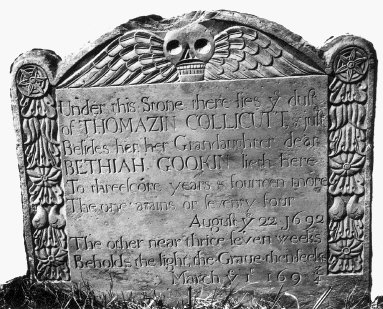 Under this Stone there lies yͤ dust
of THOMAZIN COLLICUTT, & just
Besides her her Grandaughter dear
BETHIAH GOOKIN lieth here
To threescore years & fourteen more
The one attains or seventy four
August yͤ 22 1692
The other near thrice seven weeks
Beholds the light, the Grave then seeks
March yͤ 1ˢᵗ 169